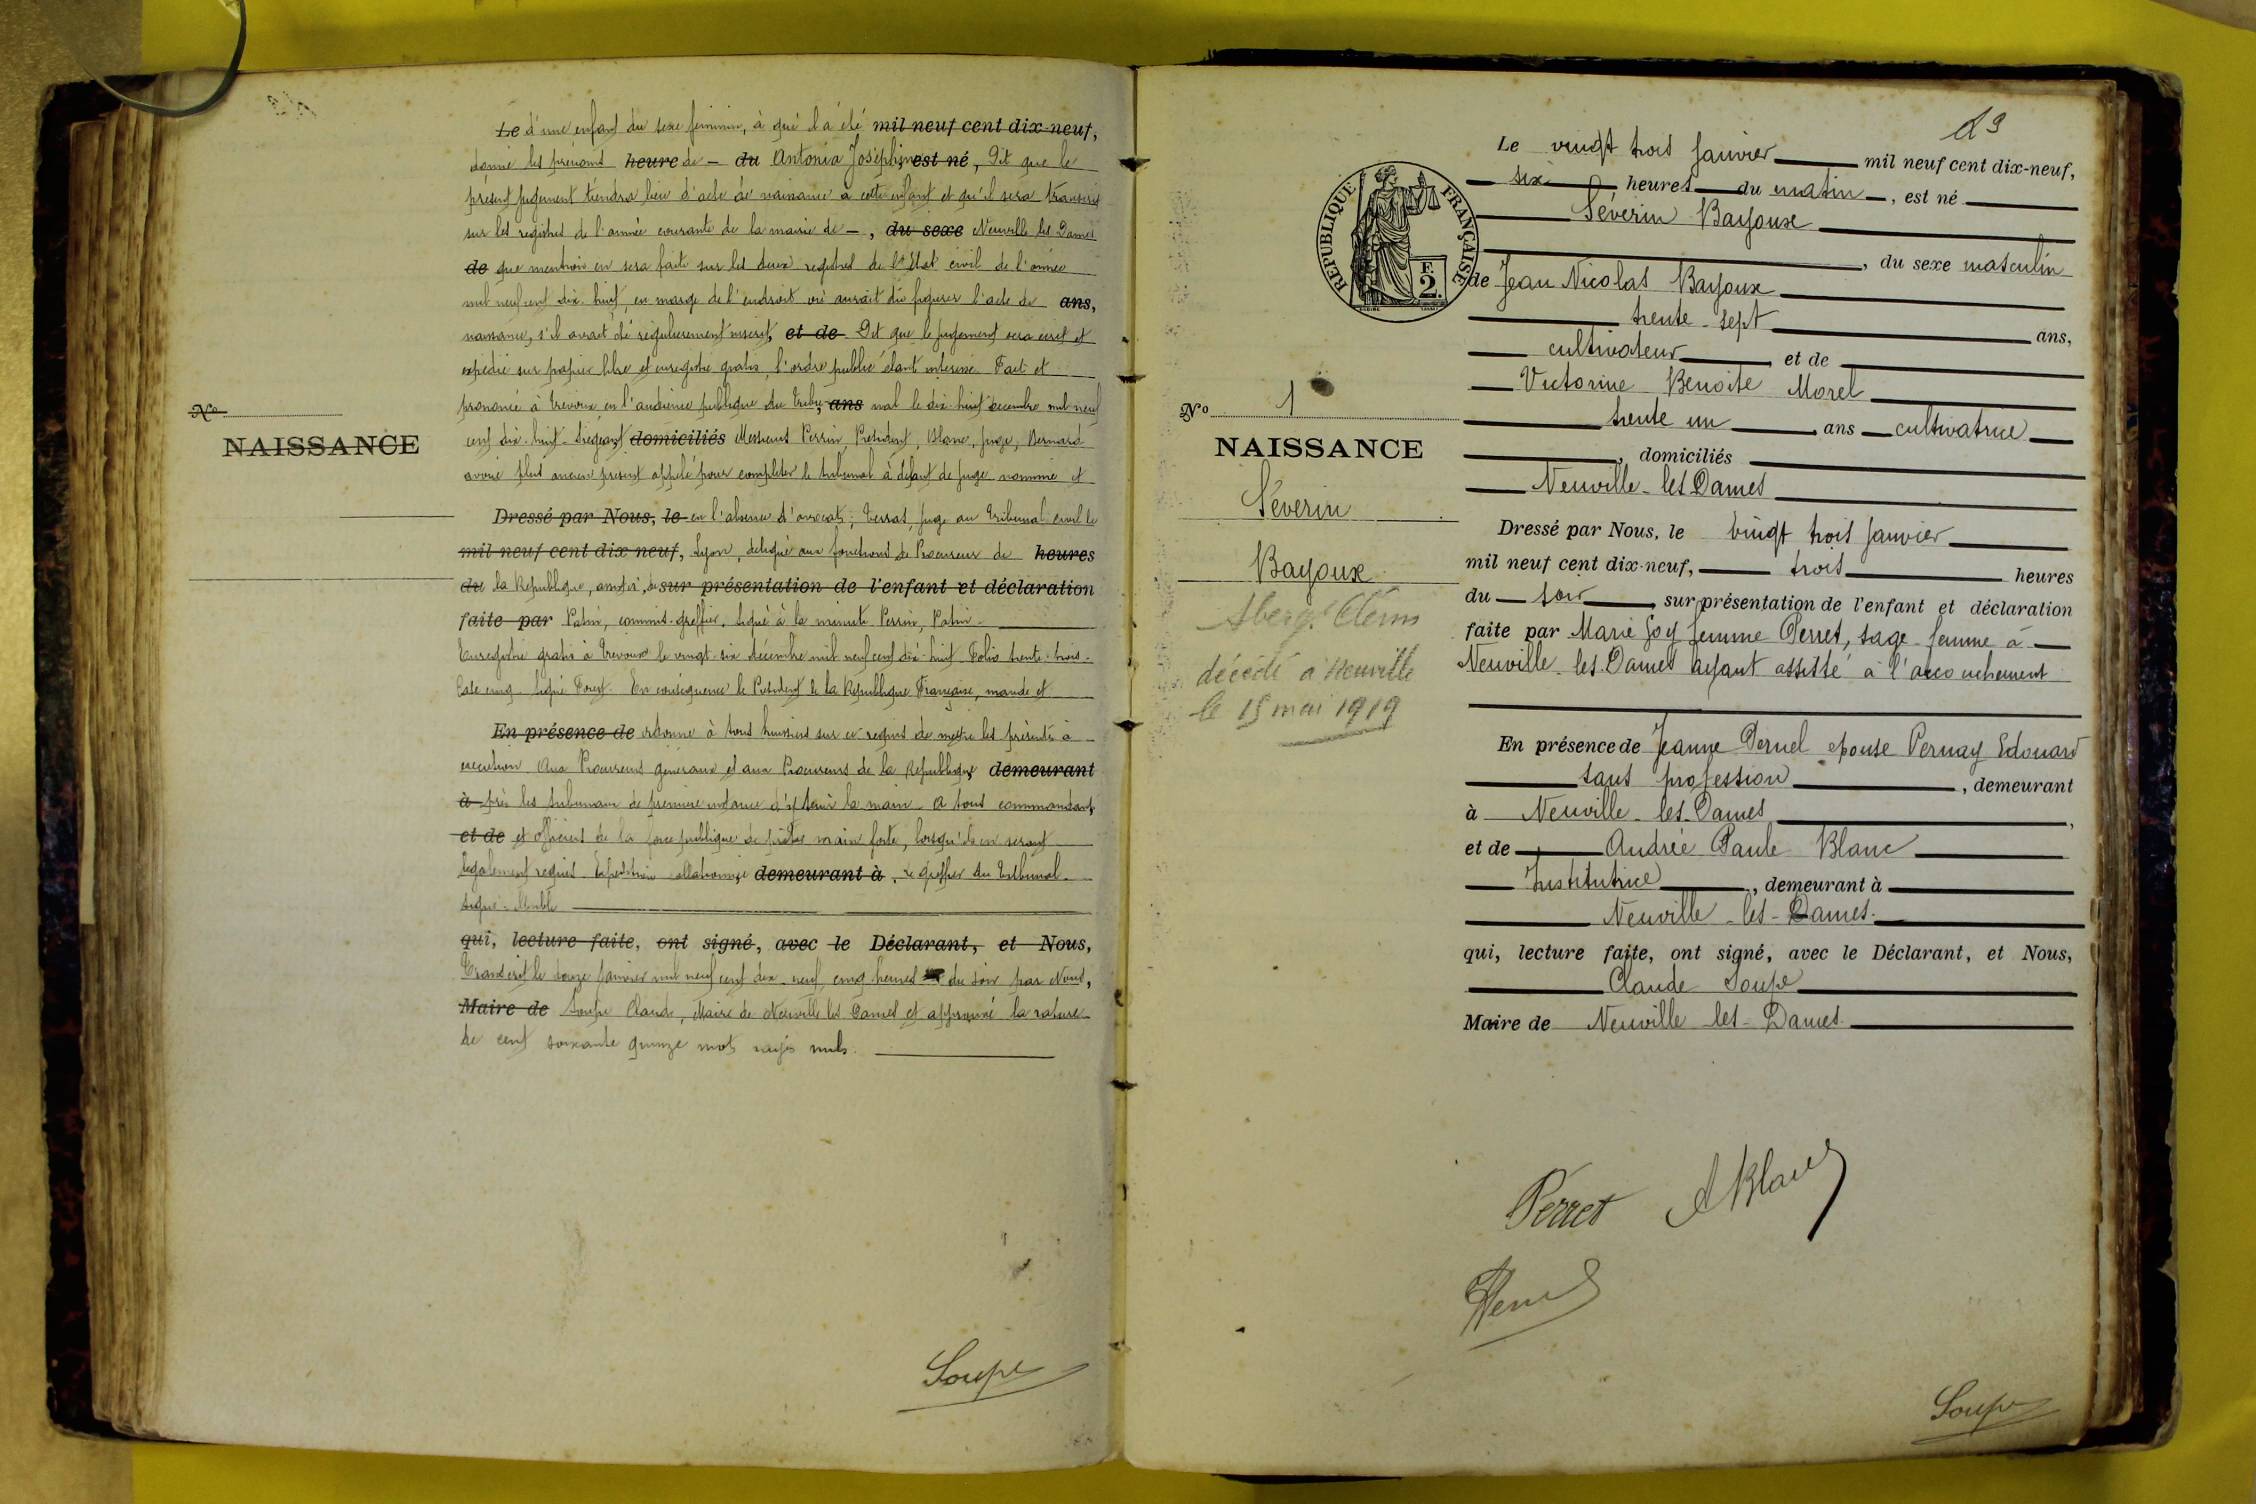 Le d'une enfant du sexe féminin, à qui il a été mil neuf cent dix-neuf,
donné les prénoms heure de — du Antonia Joséphine est né, Dit que le
présent jugement tiendra lieu d'acte de naissance à cette enfant et qu'il sera transcrit
sur les registres de l'année courante de la mairie de —, du sexe Neuville les Dames
de que mention en sera faite sur les deux registres de l'Etat civil de l'année
mil neuf cent dix-huit, en marge de l'endroit où aurait dû figurer l'acte de ans,
naissance, s'il avait été régulièrement inscrit, et de Dit que le jugement sera écrit et
expédié sur papier libre et enregistré gratis, l'ordre public étant intéressé. Fait et
prononcé à Trévoux en l'audience publique du tribu, ans nal le dix-huit décembre mil neuf
No
cent dix-huit. Siégeant domiciliés Messieurs Perrin, Président, Blanc, juge, Bernard
NAISSANCE
avoué plus ancien présent appelé pour compléter le tribunal à défaut de juge nommé et
Dressé par Nous, le en l'absence d'avocats; Terras, juge au Tribunal civil de
mil neuf cent dix neuf, Lyon, délégué aux fonctions de Procureur de heures
du la République, assisté de sur présentation de l'enfant et déclaration
faite par Patin, commis-greffier. Signé à la minute Perrin, Patin.
Enregistré gratis à Trévoux le vingt-six décembre mil neuf cent dix-huit. Folio trente-trois.
Case cinq. signé Forest. En conséquence le Président de la République Française, mande et
En présence de ordonne à tous huissiers sur ce requis de mettre les présentes à
exécution Aux Procureurs généraux et aux Procureurs de la République demeurant
à près les tribunaux de première instance d'y tenir la main. A tous commandants
et de et officiers de la force publique de prêter main forte, lorsqu'ils en seront
légalement requis. Expédition collationnée demeurant à, le greffier du tribunal.
signé
qui, lecture faite, ont signé, avec le Déclarant, et Nous,
Transcrit le douze janvier mil neuf cent dix-neuf cinq heures du soir par Nous,
Maire de Soupe Claude, Maire de Neuville les Dames et approuvé la rature
de cent soixante quinze mots rayés nuls.
Soupe
Le vingt trois janvier mil neuf cent dix-neuf,
six heures du matin, est né
Séverin Bayoux
, du sexe masculin
RÉPUBLIQUE FRANÇAISE
F. 2.
de Jean Nicolas Bayoux
trente-sept ans,
cultivateur et de
Victorine Benoite Morel
No 1
trente un ans cultivatrice
NAISSANCE
, domiciliés
Séverin
Neuville-les Dames
Dressé par Nous, le vingt trois janvier
Bayoux
mil neuf cent dix-neuf, trois heures
du soir, sur présentation de l'enfant et déclaration
faite par Marie Goy femme Perret, sage-femme à
décédé à Neuville
Neuville-les Dames ayant assisté à l'accouchement
le 15 mai 1919
En présence de Jeanne Pernel épouse Pernay Edouard
sans profession, demeurant
à Neuville-les-Dames,
et de Andrée Paule Blanc
Institutrice, demeurant à
Neuville-les-Dames.
qui, lecture faite, ont signé, avec le Déclarant, et Nous,
Claude Soupe
Maire de Neuville les-Dames.
Perret ABlanc
Soupe